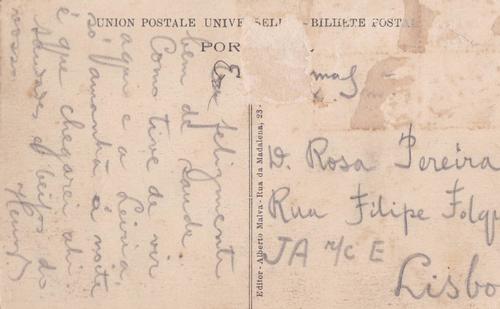 UNION POSTALE UNIVERSELLE - BILHETE POSTAL
POR
felizmente
bem de saude
Como tive de vir
aqui e a Leiria
só amanhã á noite
é que chegarei ahi
saudades e beijos do
vosso
Editor - Alberto Malva - Rua da Madalena, 23 -
D. Rosa Pereira
Rua Filipe Folq
JA r/c E
Lisbo